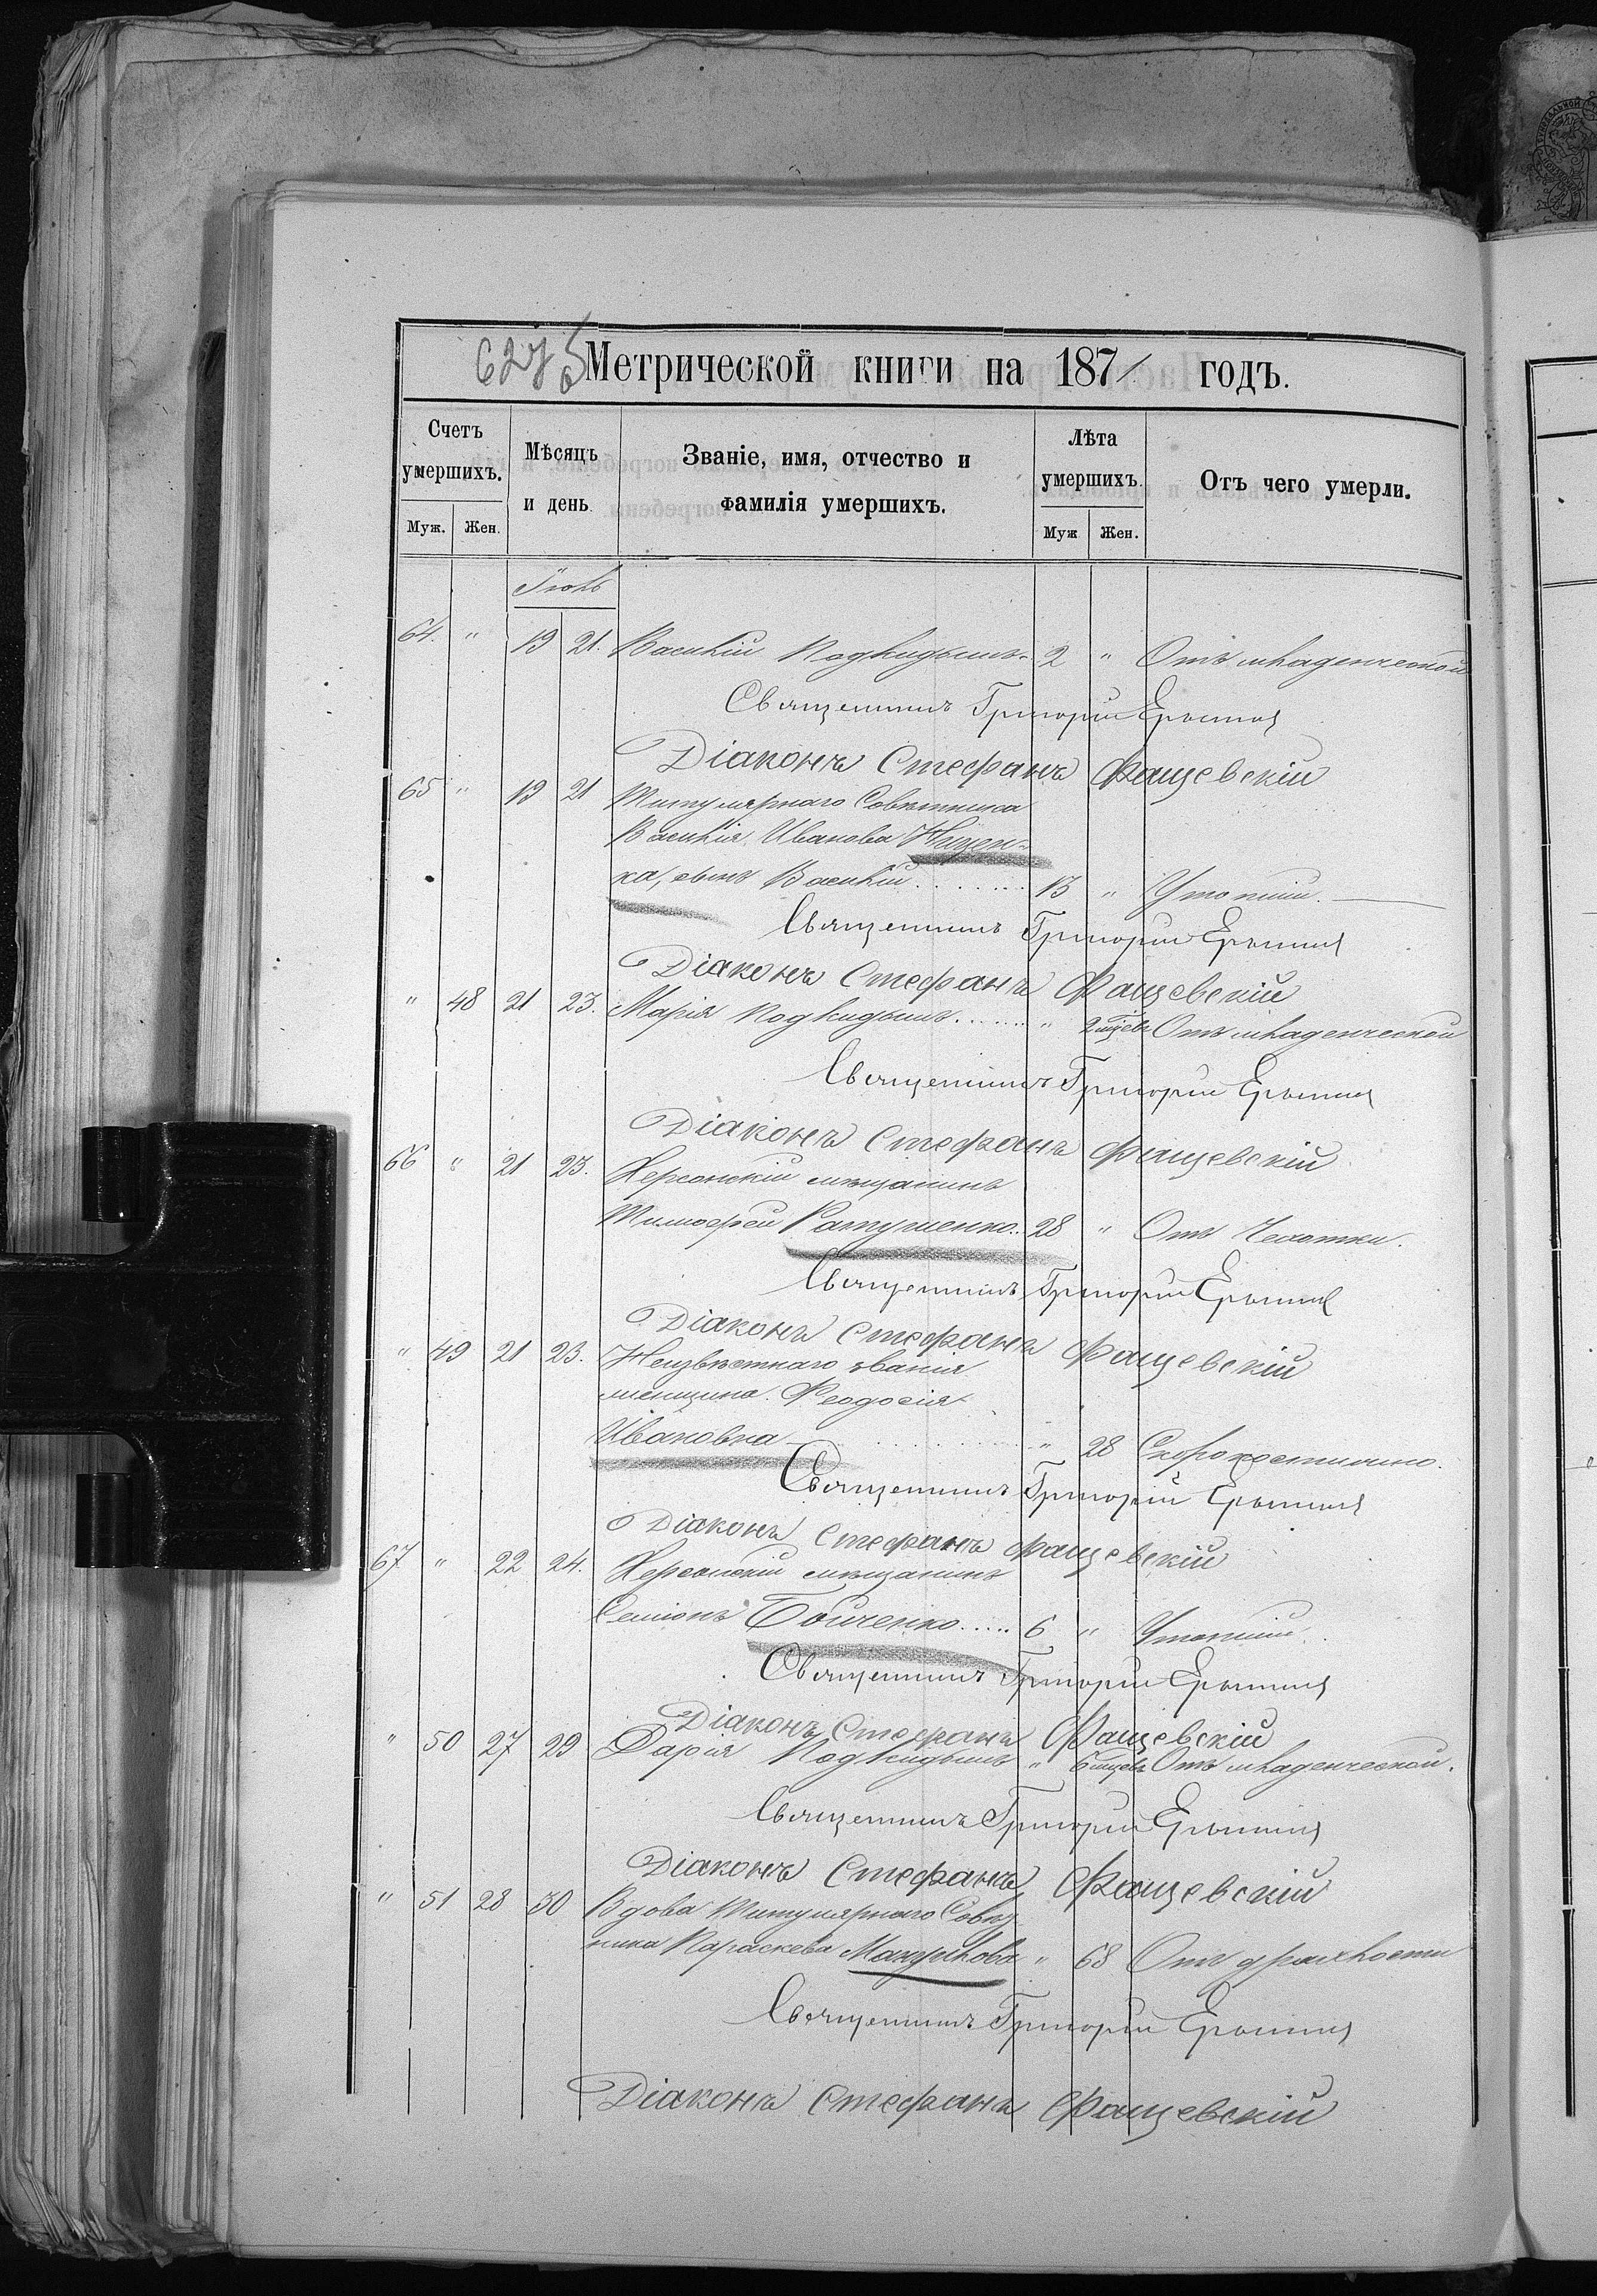 Метрической книги на 1871 годъ.
Счетъ умершихъ.
Муж. Жен.
Мѣсяцъ и день.
Званіе, имя, отчество и фамилія умершихъ.
Лѣта умершихъ.
Муж Жен.
Отъ чего умерли.
64. " 19 21. Василій Подкидышъ 2 " Отъ младенческой
Священникъ Григорій
Діаконъ Стефанъ Фащевскій
65 " 19 21 Титулярнаго Совѣтника
Василія Иванова Ницен-
ка, сынъ Василій 13 " Утопій.
Священникъ Григорій
Діаконъ Стефанъ Фащевскій
" 48 21 23. Марія Подкидышъ " 2 мцѣв Отъ младенческой
Священникъ Григорій
Діаконъ Стефанъ Фащевскій
66 " 21 23. Херсонскій мѣщанинъ
Тимофей Ратушенко 28 " Отъ Чахотки.
Священникъ Григорій
Діаконъ Стефанъ Фащевскій
" 49 21 23. Неизвѣстнаго званія
женщина Феодосія
Ивановна " 28 Скоропостижно.
Священникъ Григорій
Діаконъ Стефанъ Фащевскій
67 " 22 24. Херсонскій мѣщанинъ
Семіонъ Бойченко 6 " Утопій.
Священникъ Григорій
Діаконъ Стефанъ Фащевскій
" 50 27 29 Дарія Подкидышъ " 6 мцѣв Отъ младенческой.
Священникъ Григорій
Діаконъ Стефанъ Фащевскій
" 51 28 30 Вдова Титулярнаго Совѣт
ника Параскева " 68 Отъ дряхлости
Священникъ Григорій
Діаконъ Стефанъ Фащевскій